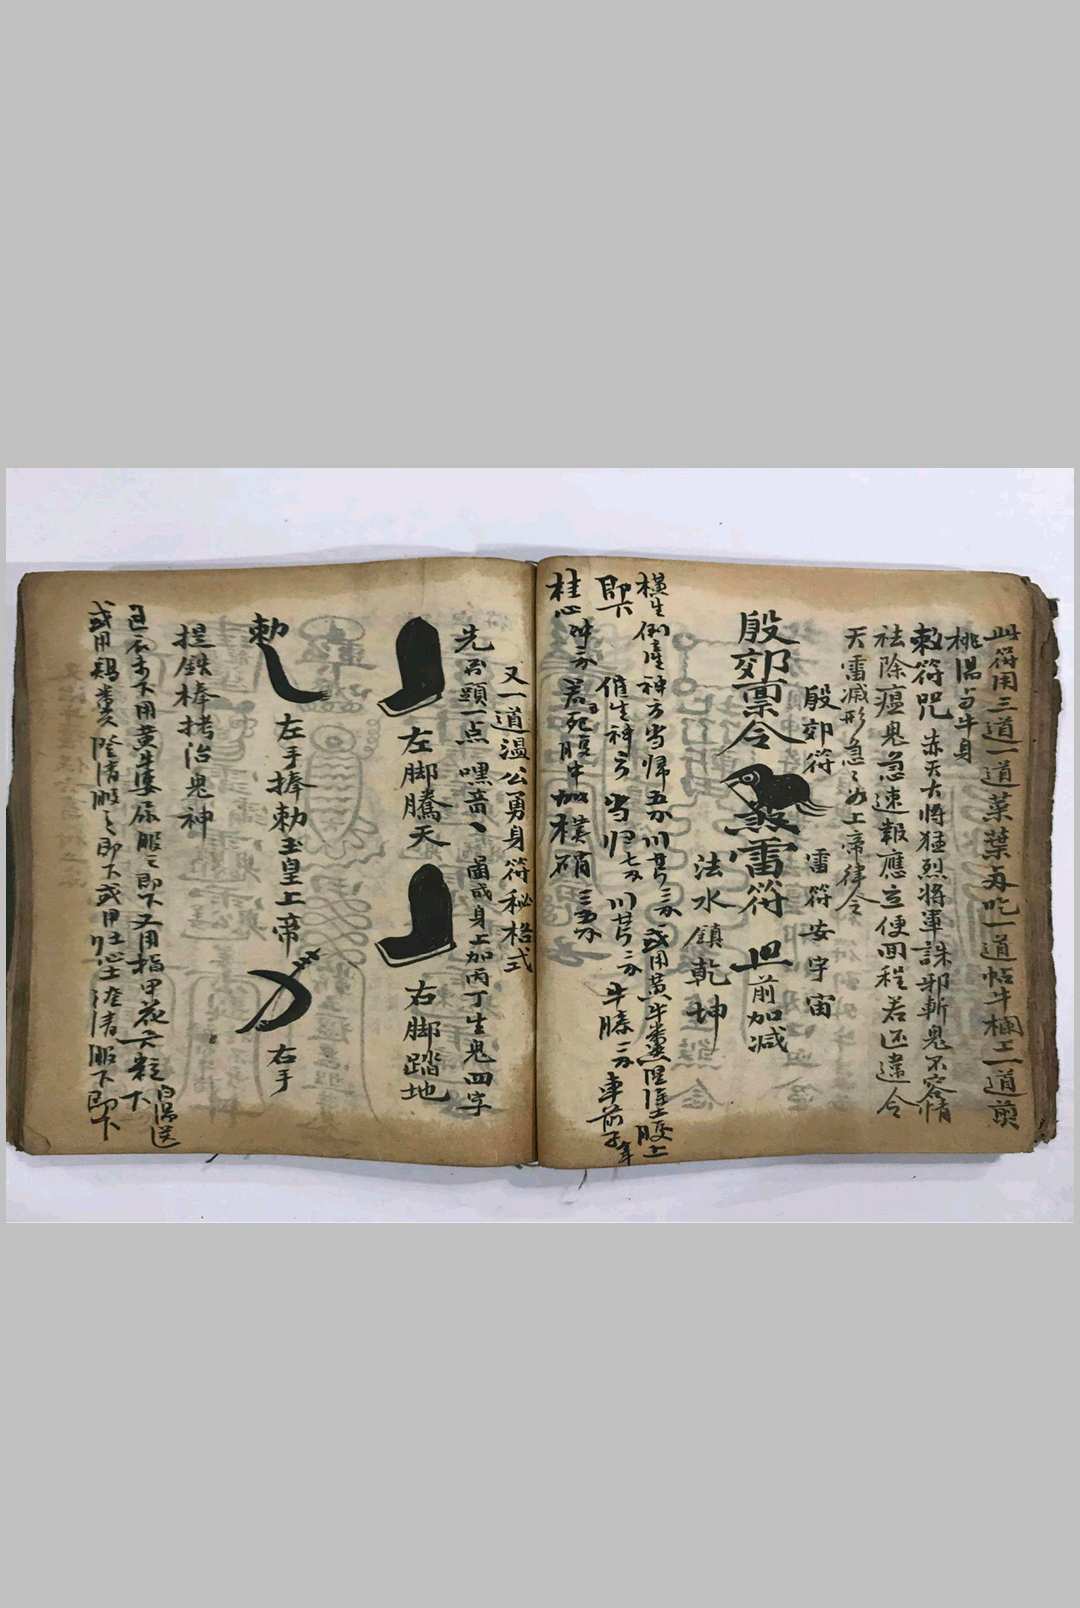 此符用三道一道菜葉再吃一道帖牛欄上一道煎
桃湯与牛身
敕符咒 赤天大将猛烈将軍誅邪斬鬼不容情
祛除瘟鬼急速報應立便回程若还違令
天雷滅形急〻如上帝律令
殷郊符 雷符安宇宙
殷郊禀令 煞雷符 前加减
法水鎮乾坤
横生倒産神方当帰五分川芎三分或用黄牛糞
即下 催生神方 当归七分川芎二分牛膝二分車前子
桂心 若死腹中加樸硝三五分
又一道温公勇身符秘格式
先 頭一点 嘿音 圖或身上加丙丁生鬼四字
左脚騰天 右脚踏地
敕
左手捧敕玉皇上帝 右手
提鉄棒拷治鬼神
衣不下用黄牛 尿服之即下又用指甲花六粒 白湯送下
或用鷄糞 澄清服之即下或用灶心土澄清服下即下